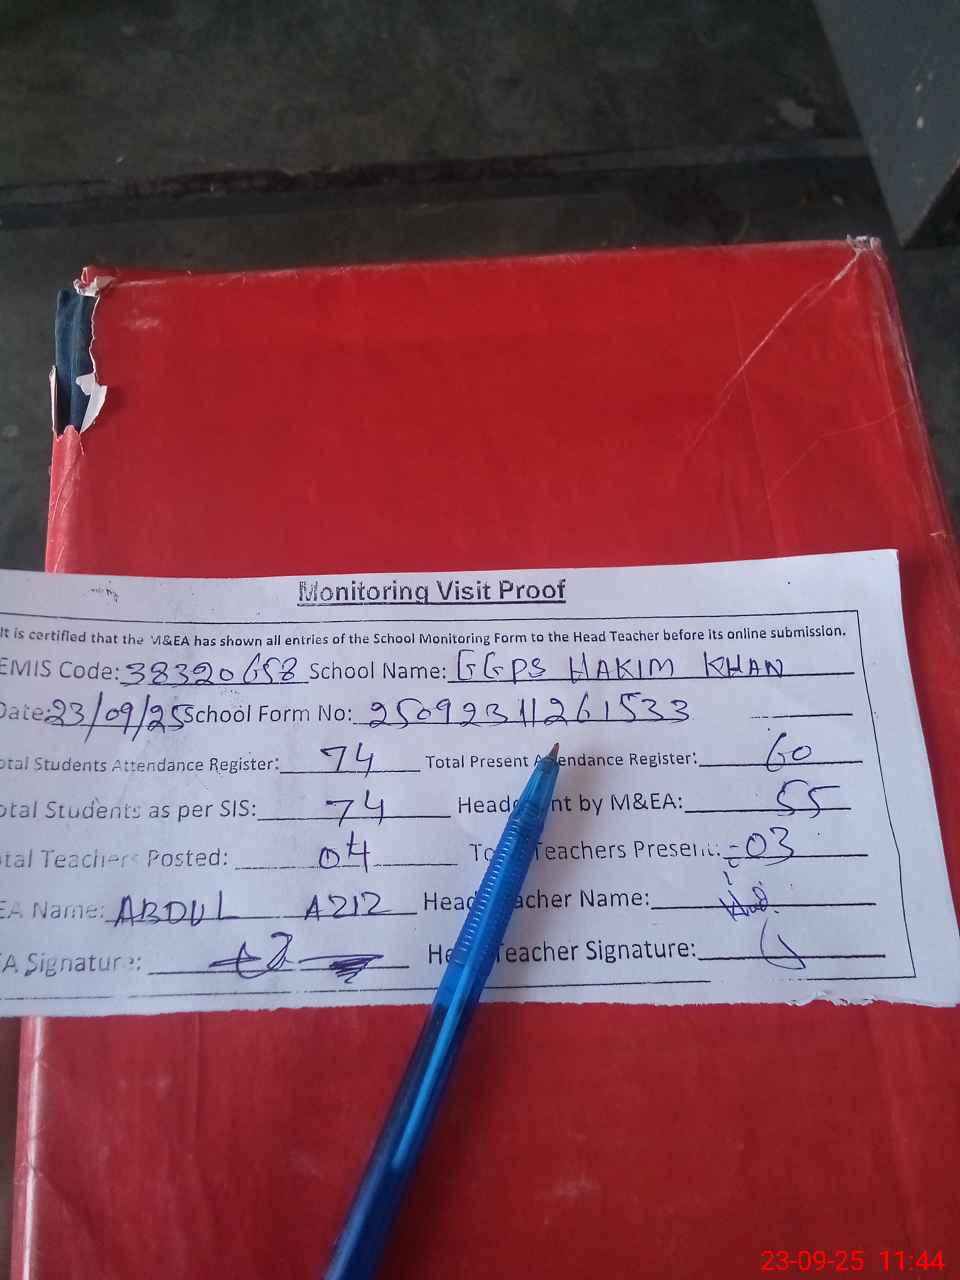 Monitoring Visit Proof
It is certified that the M&EA has shown all entries of the School Monitoring Form to the Head Teacher before its online submission.
EMIS Code: 38320658 School Name: GGPS HAKIM KHAN
Date: 23/09/25 School Form No: 25092311261533
otal Students Attendance Register: 74 Total Present Attendance Register: 60
otal Students as per SIS: 74 Head nt by M&EA: 55
tal Teachers Posted: 04 To Teachers Present: 03
EA Name: ABDUL AZIZ Head acher Name:
EA Signature: He Teacher Signature:
23-09-25 11:44